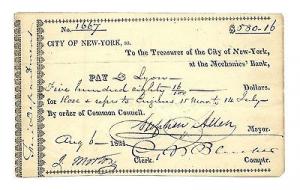 No. 1667 $580-16
CITY OF NEW-YORK, ss.
To the Treasurer of the City of New-York,
at the Mechanics' Bank,
PAY D Lyon
Five hundred eighty 16/100 Dollars.
for Hose & reprs to Engines 15 Mar to 14 July
By order of Common Council.
Stephen Allen
Mayor.
Aug 6 1821
J. Morton
Clerk. Comptr.